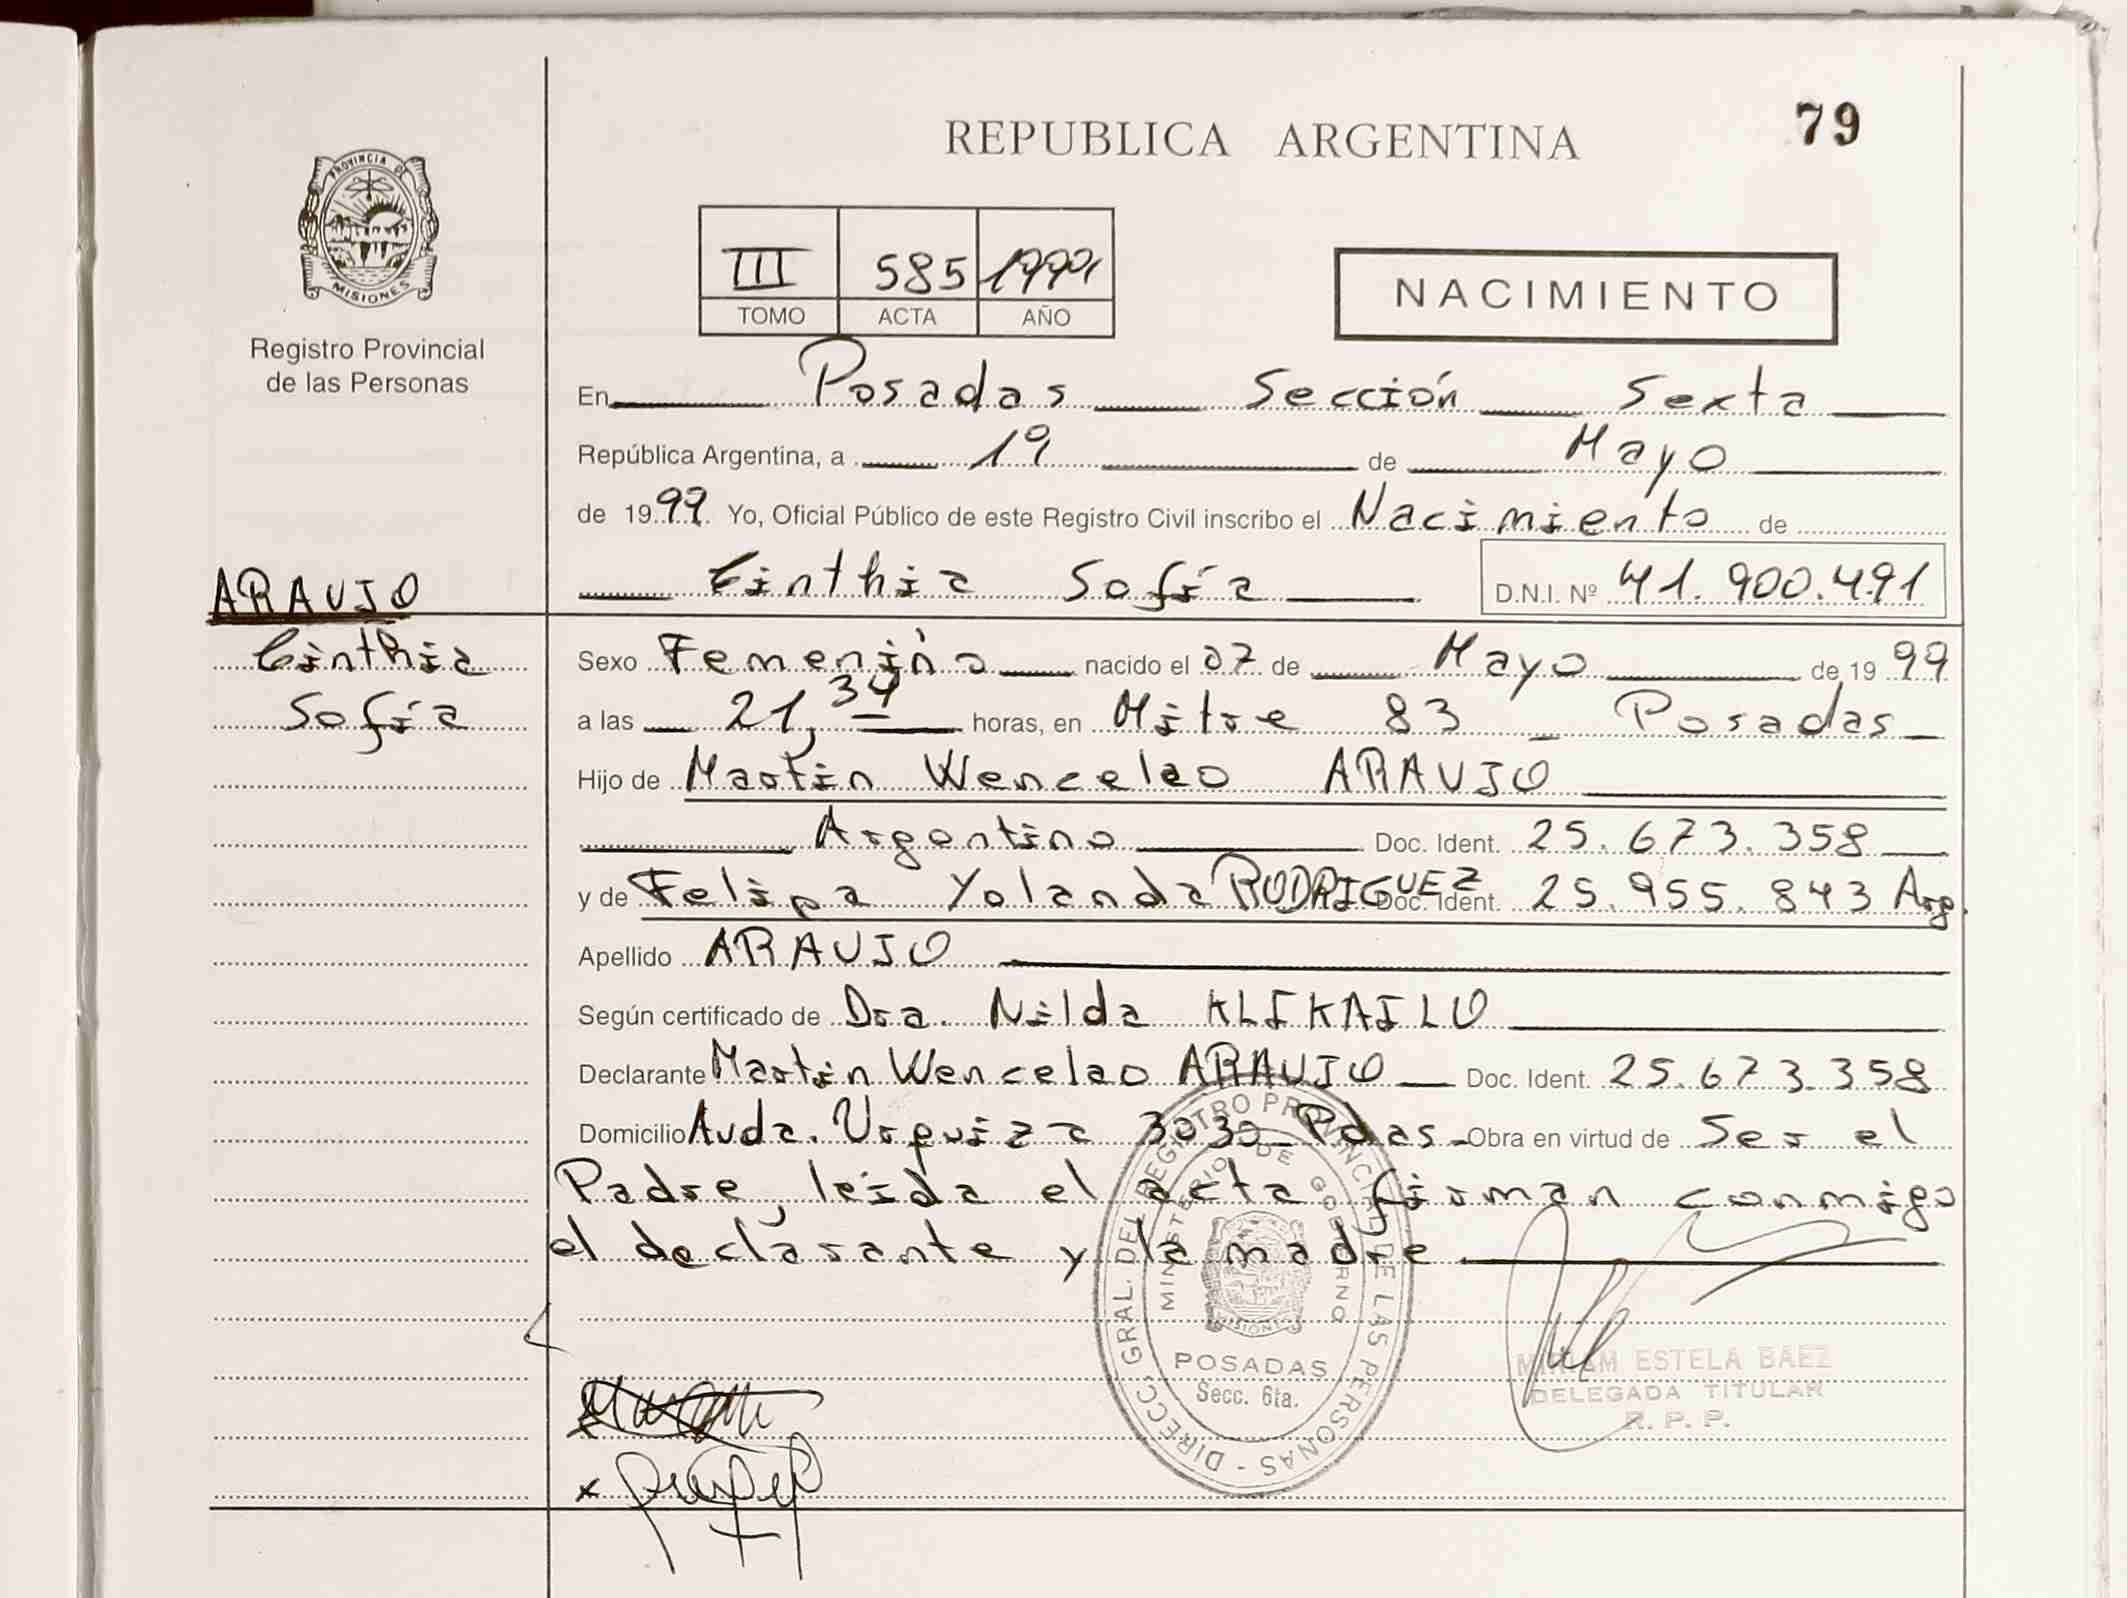 79
REPUBLICA ARGENTINA
PROVINCIA DE
MISIONES
Registro Provincial
de las Personas
III 585 1999
TOMO ACTA AÑO
NACIMIENTO
En Posadas Sección Sexta
República Argentina, a 19 de Mayo
de 1999 Yo, Oficial Público de este Registro Civil inscribo el Nacimiento de
Cinthia Sofía D.N.I. Nº 41.900.491
ARAUJO
Cinthia
Sofía
Sexo Femenino nacido el 07 de Mayo de 1999
a las 21,34 horas, en Mitre 83 - Posadas
Hijo de Martín Wencelao ARAUJO
Argentino Doc. Ident. 25.673.358
y de Felipa Yolanda RODRIGUEZ Doc. Ident. 25.955.843 Arg.
Apellido ARAUJO
Según certificado de Dra. Nilda KLIKAILO
Declarante Martín Wencelao ARAUJO Doc. Ident. 25.673.358
Domicilio Avda. Urquiza 3030 Pdas - Obra en virtud de Ser el
Padre, leida el acta firman conmigo
el declarante y la madre
DIRECC. GRAL. DEL REGISTRO PROVINCIAL DE LAS PERSONAS -
MINISTERIO DE GOBIERNO
MISIONES
POSADAS
Secc. 6ta.
MIRIAM ESTELA BAEZ
DELEGADA TITULAR
R. P. P.